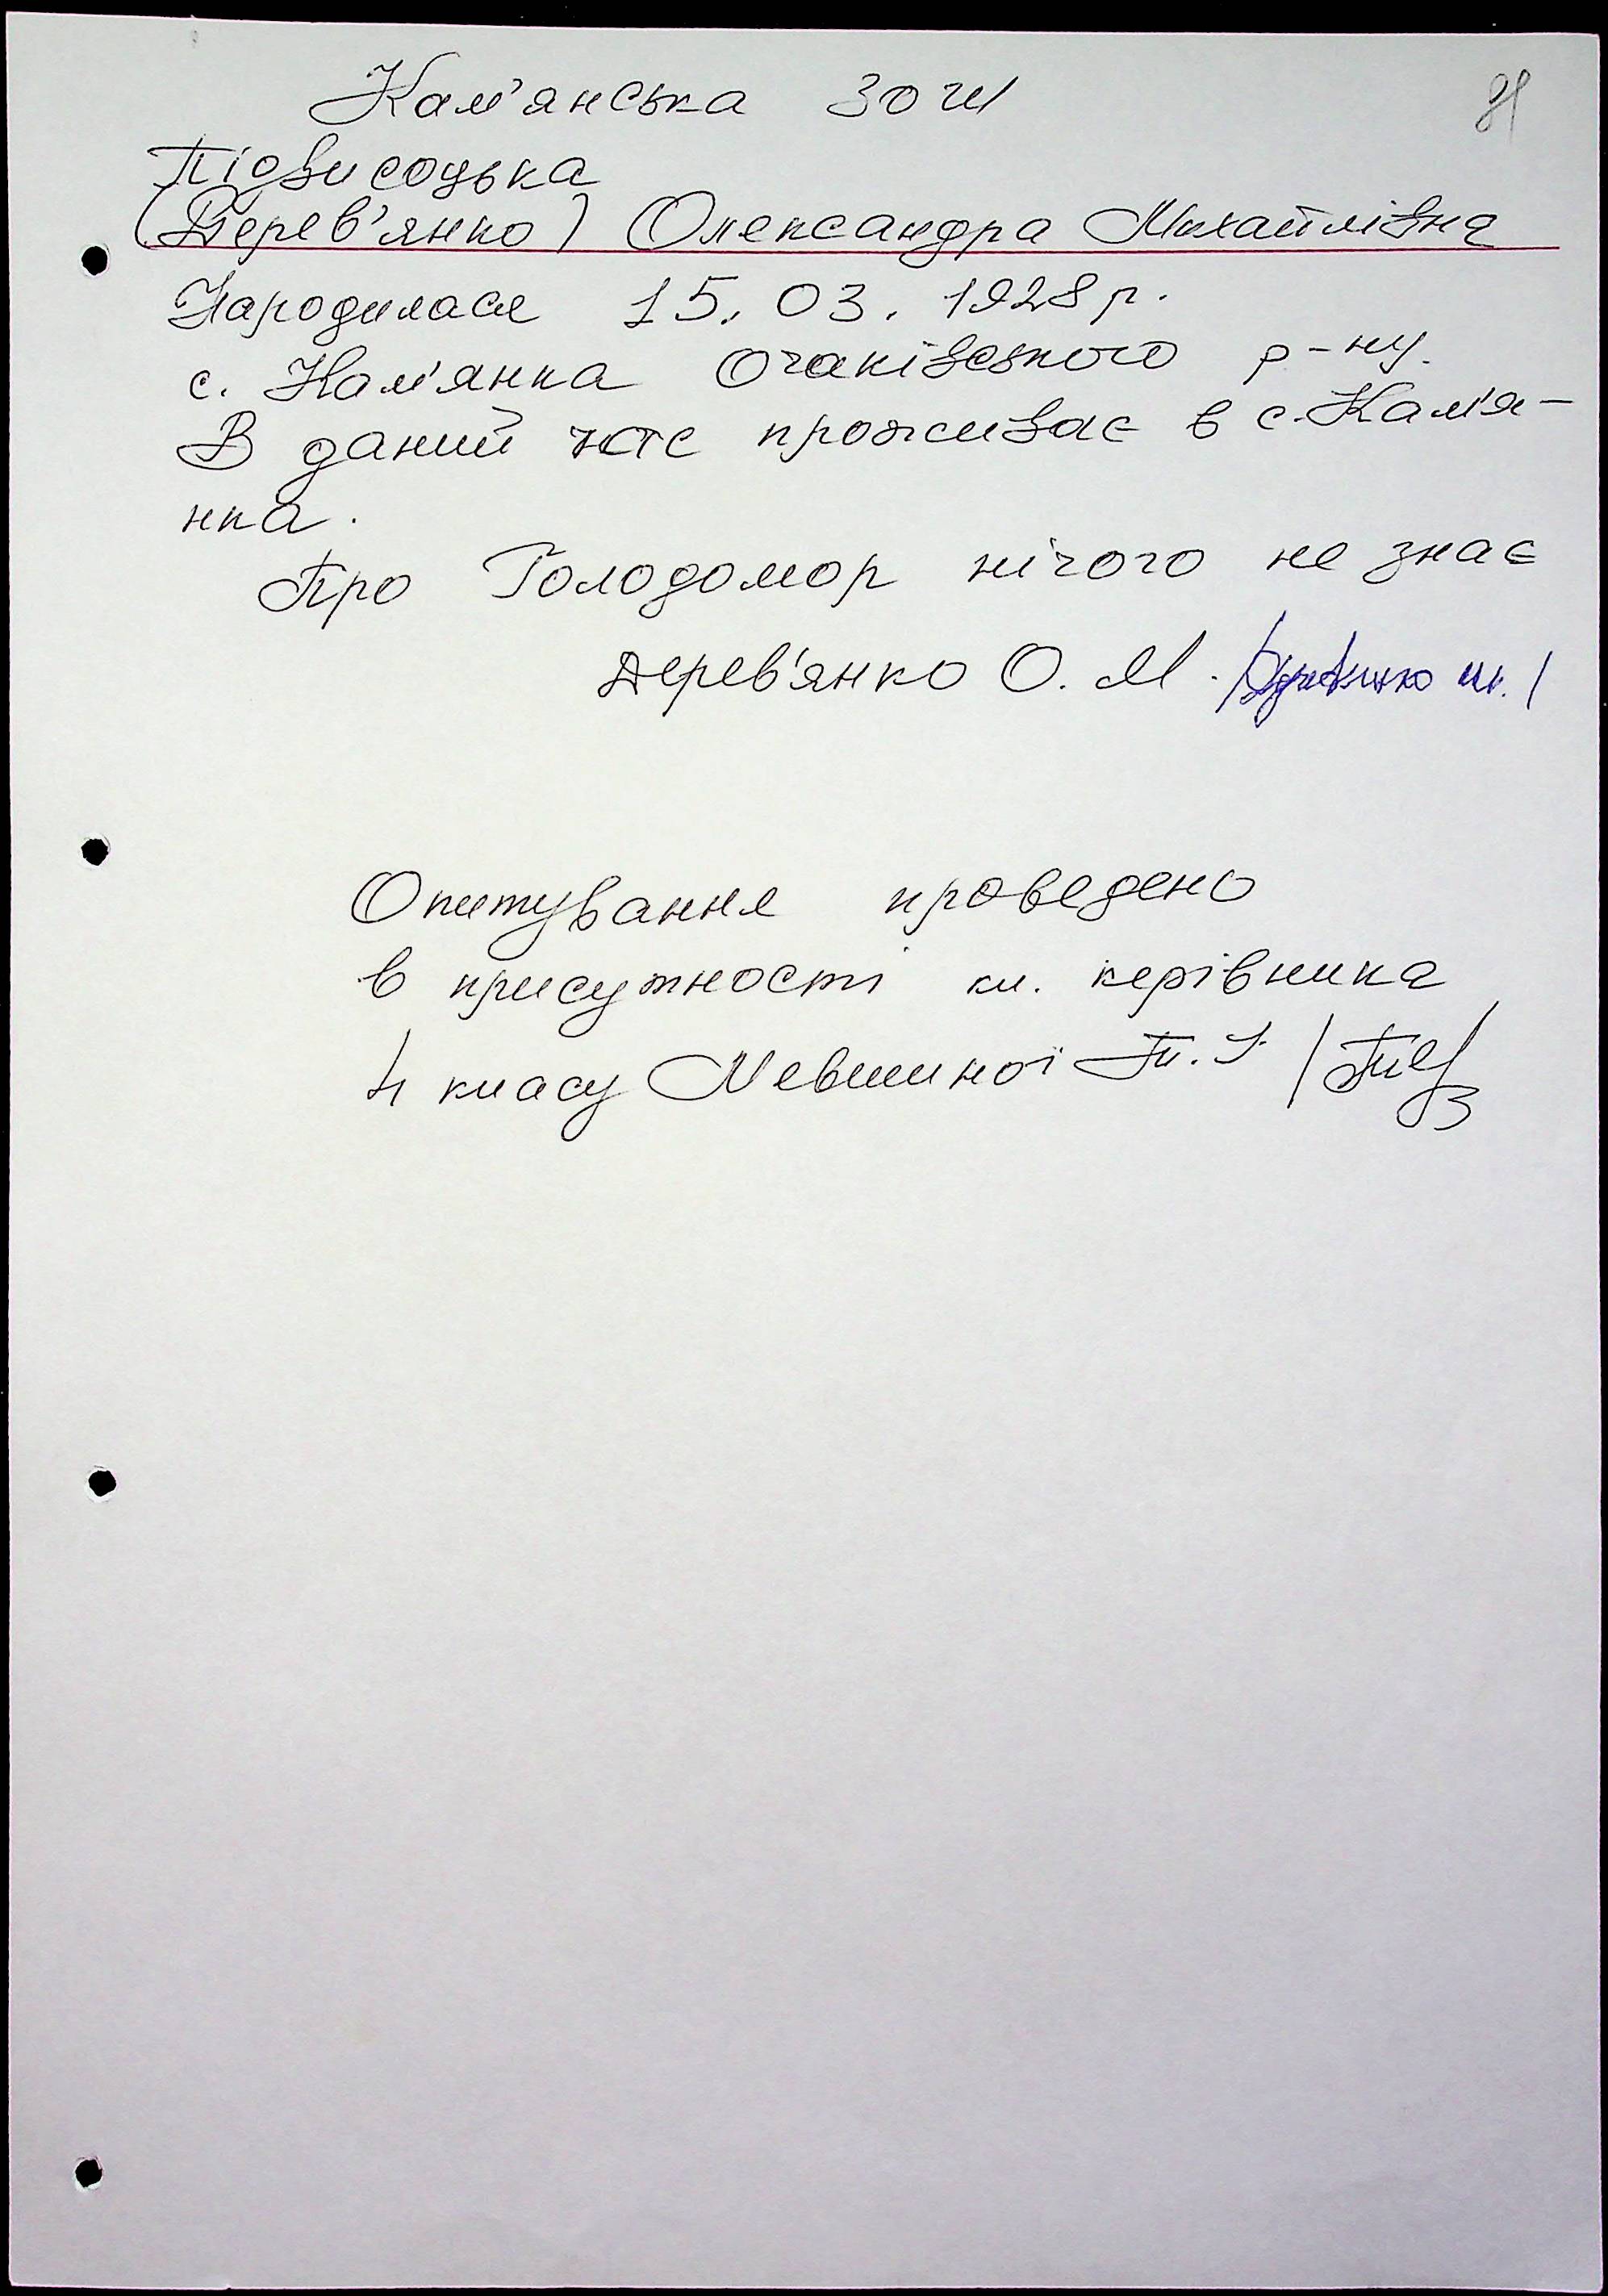 Кам'янська ЗОШ
Підвисоцька
(Дерев'янко) Олександра Михайлівна
Народилася 15.03.1928 р.
с. Кам'янка Очаківського р-ну.
В даний час проживає в с. Кам'я-
нка.
Про Голодомор нічого не знає
Дерев'янко О. М.
Опитування проведено
в присутності кл. керівника
4 класу